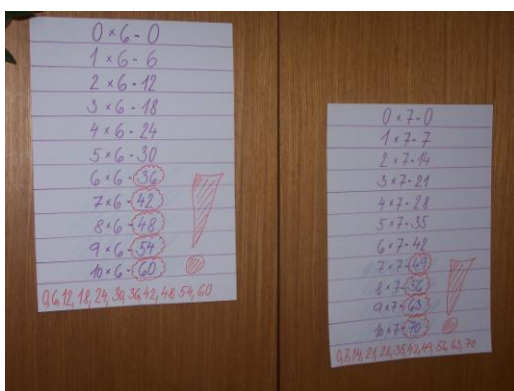 0×6-0
1×6-6
2×6-12
3×6-18
4×6-24
5×6-30
6×6-36
7×6-42
8×6-48
9×6-54
10×6-60
0,6,12,18,24,30,36,42,48,54,60
0×7-0
1×7-7
2×7-14
3×7-21
4×7-28
5×7-35
6×7-42
7×7-49
8×7-56
9×7-63
10×7-70
0,7,14,21,28,35,42,49,56,63,70